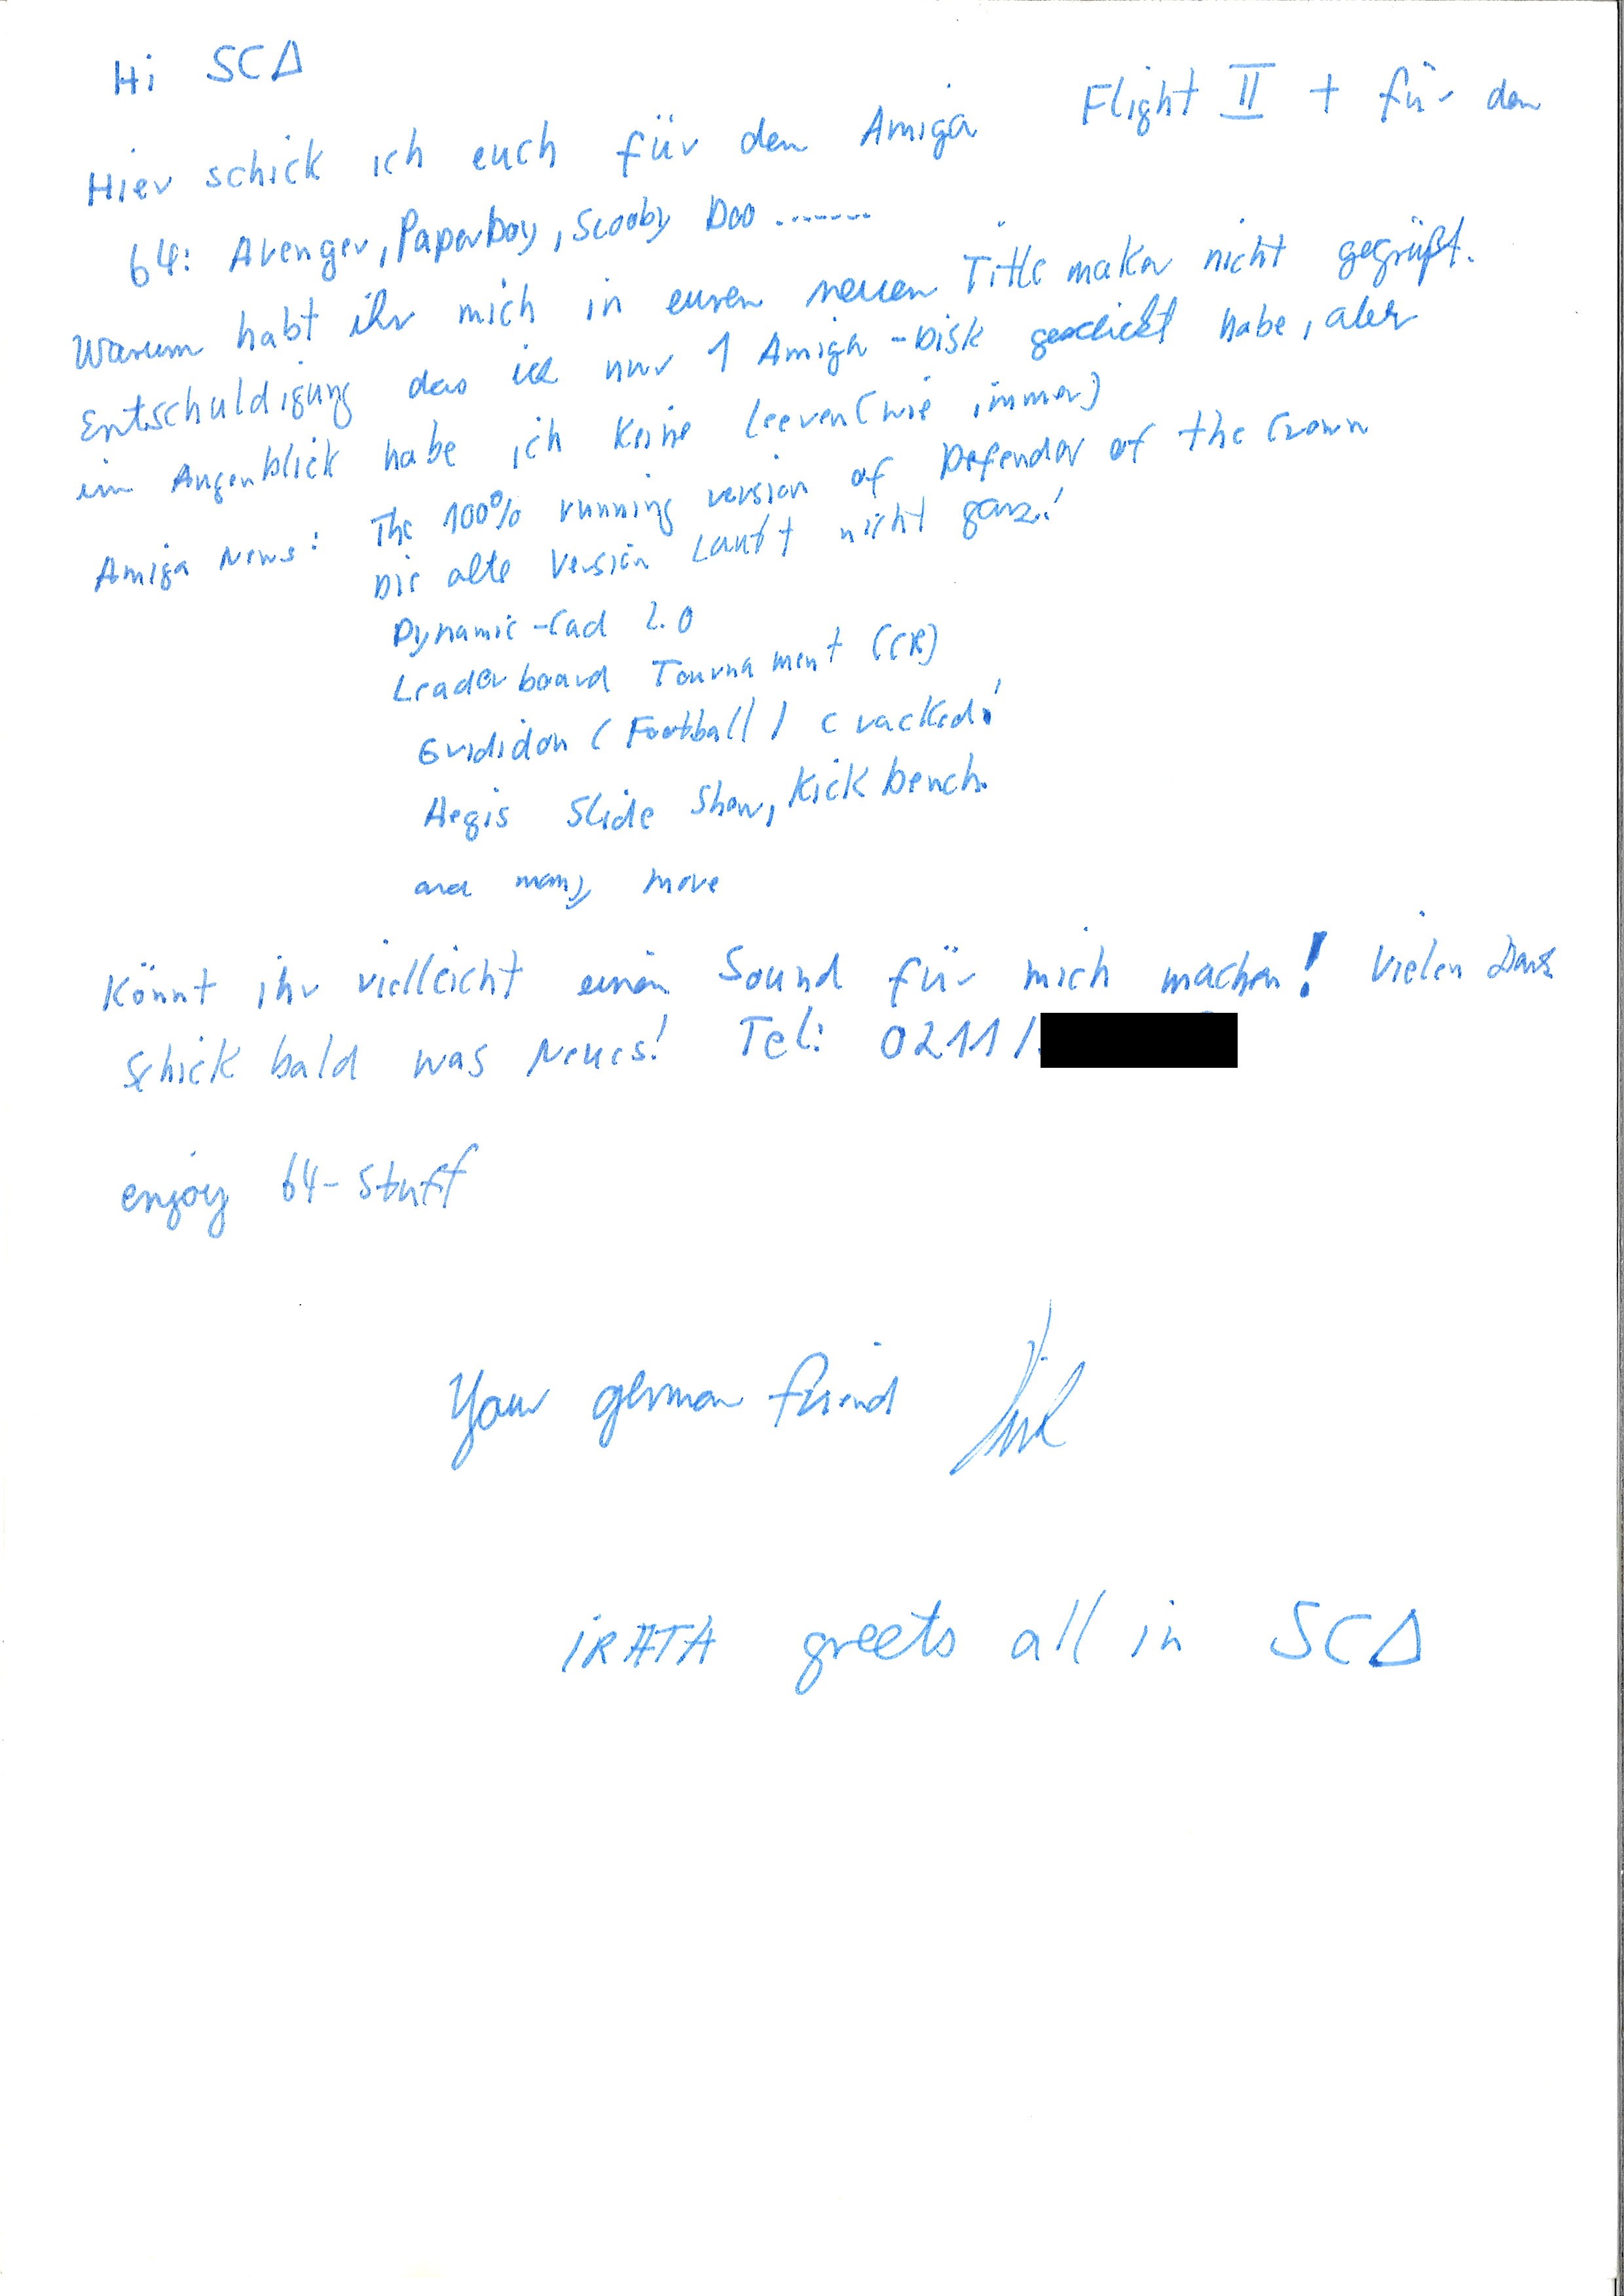 Hi SCA
Hier schick ich euch für den Amiga Flight II + für den
64: Avenger, Paperboy, Scooby Doo .......
Warum habt ihr mich in euren neuen Title maker nicht gegrüßt.
Entschuldigung das ich nur 1 Amiga-Disk geschickt habe, aber
im Augenblick habe ich keine leeren (wie immer)
Amiga News: The 100% running version of Defender of the Crown
Die alte Version Lauft nicht ganz!
Dynamic-Cad 2.0
Leaderboard Tournament (CR)
Grididon (Football) cracked!
Aegis Slide Show, Kickbench.
and many more
Könnt ihr vielleicht einen Sound für mich machen! Vielen Dank
Schick bald was Neues! Tel: 0211/
enjoy 64-Stuff
Your german friend
IRATA greets all in SCA